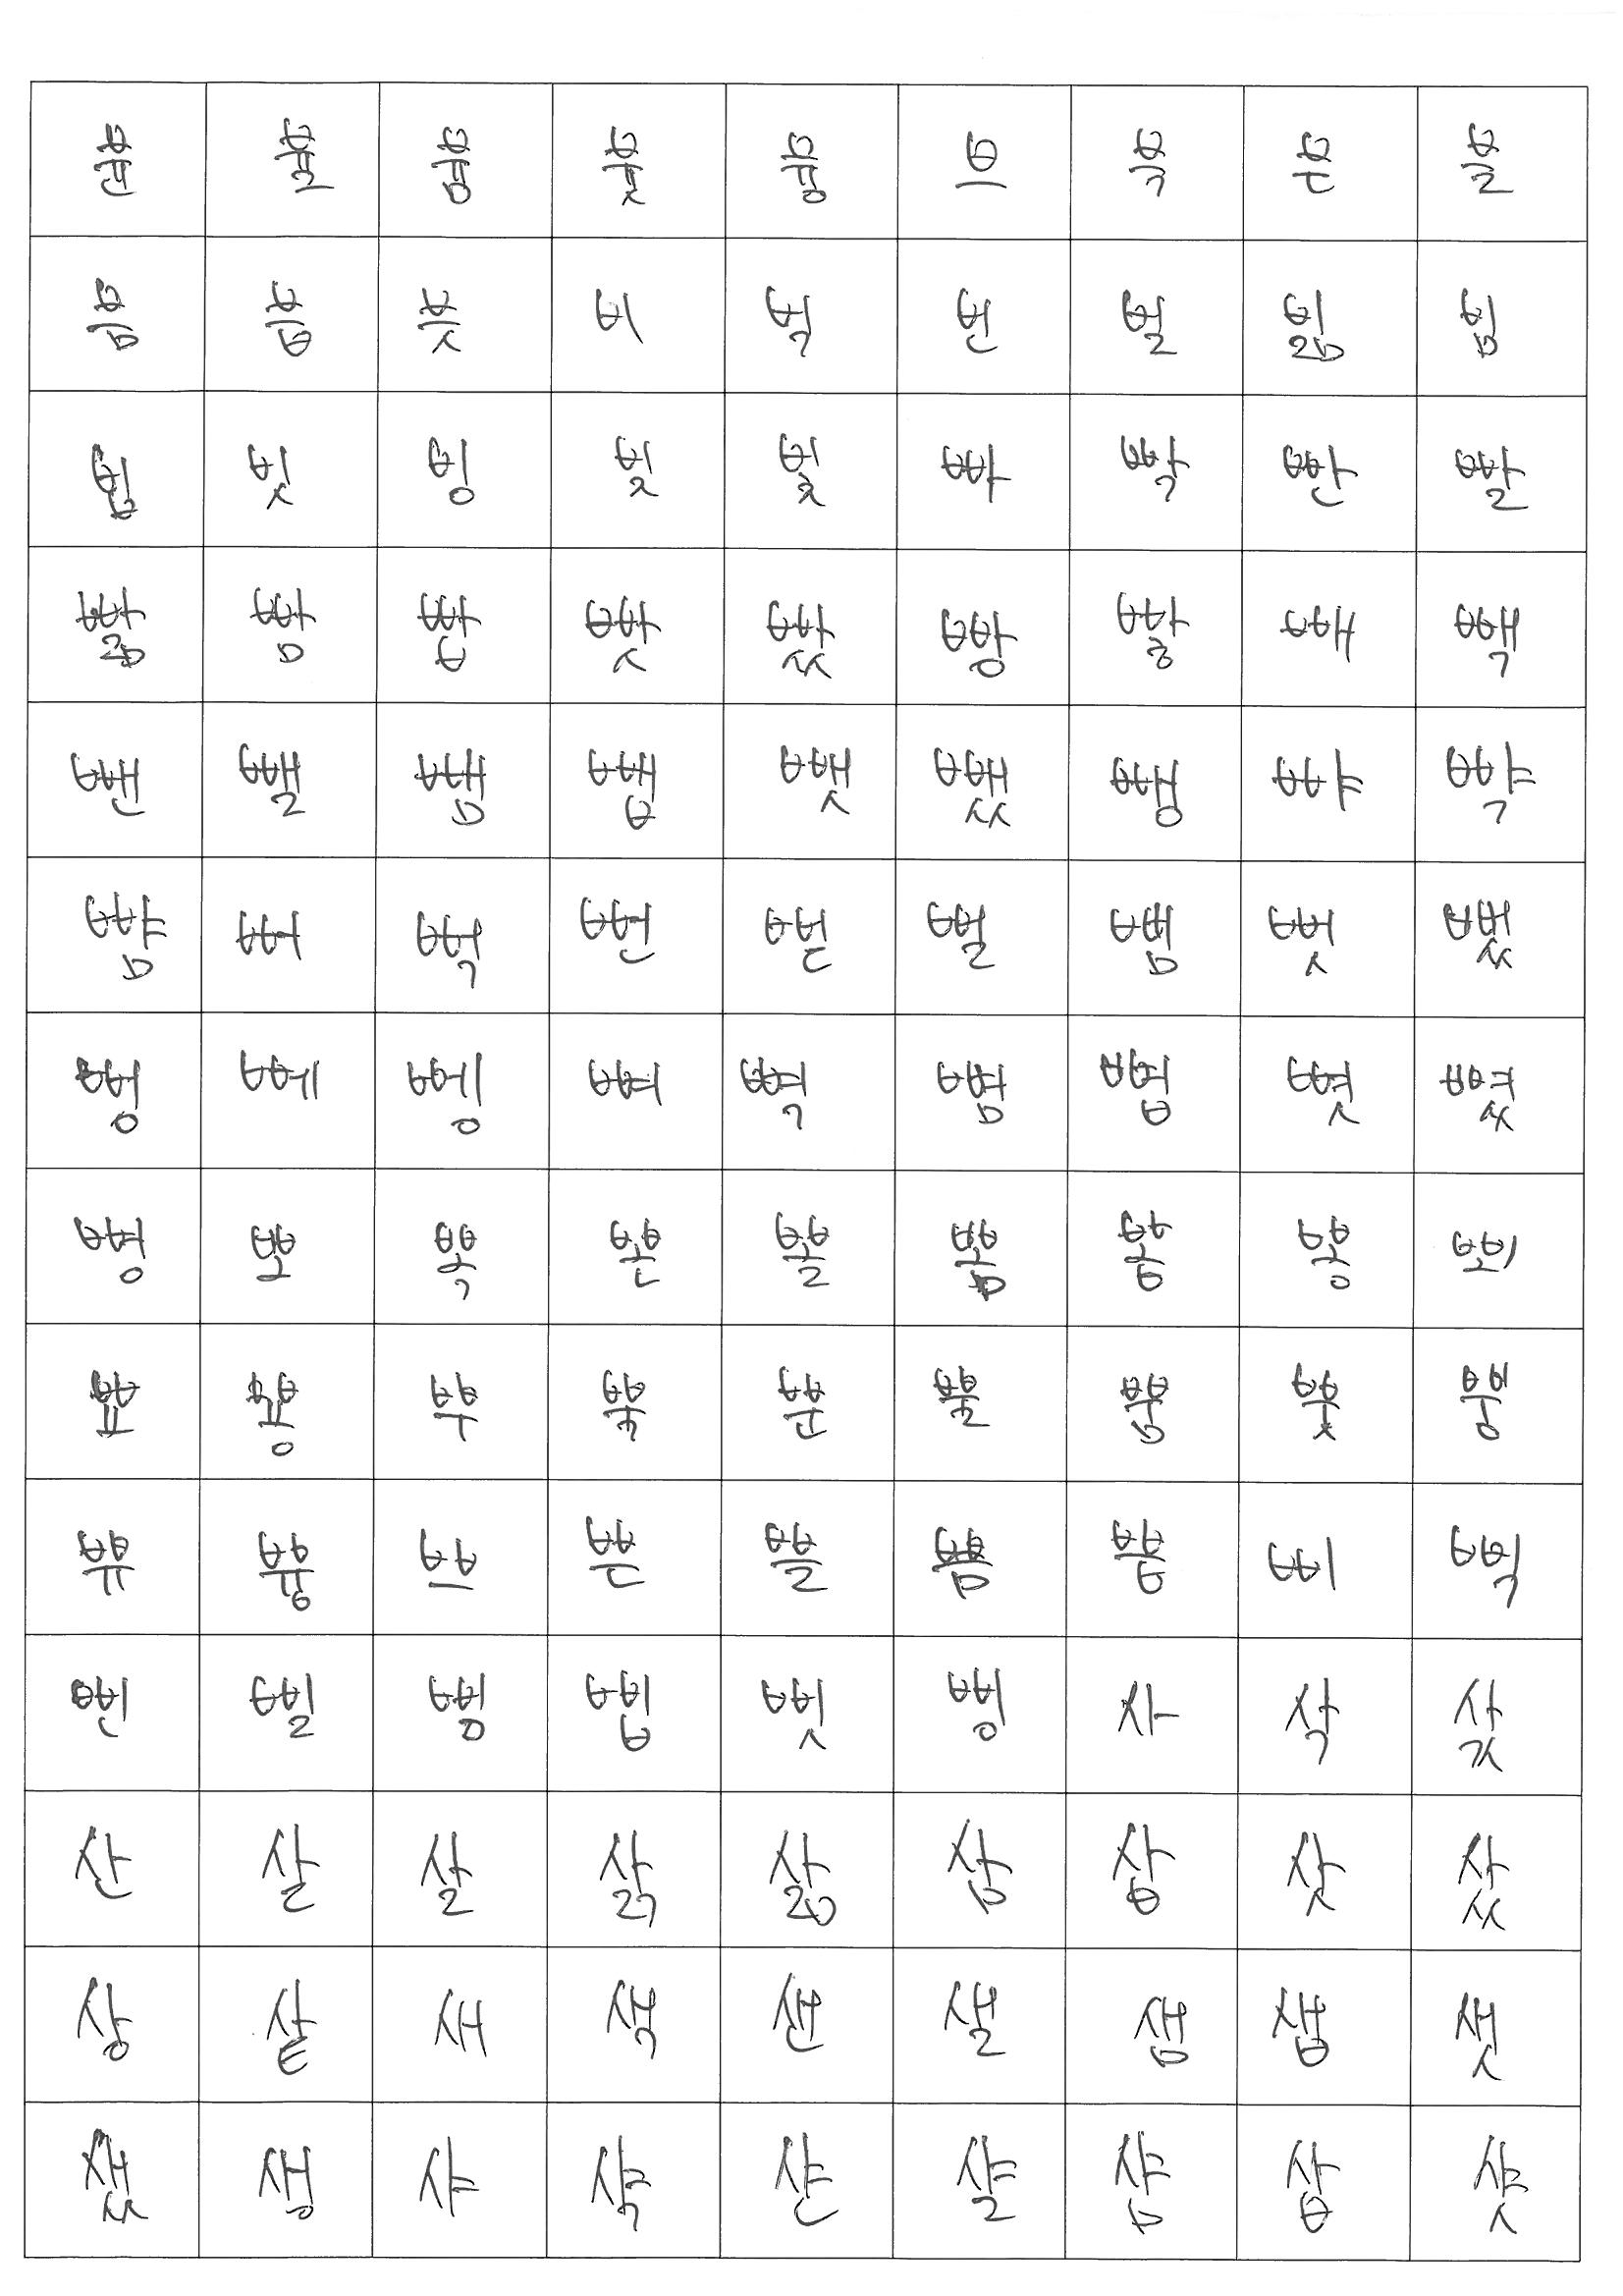 뷴 뷸 븀 븃 븅 브 븍 븐 블
븜 븝 븟 비 빅 빈 빌 빎 빔
빕 빗 빙 빚 빛 빠 빡 빤 빨
빪 빰 빱 빳 빴 빵 빻 빼 빽
뺀 뺄 뺌 뺍 뺏 뺐 뺑 뺘 뺙
뺨 뻐 뻑 뻔 뻗 뻘 뻠 뻣 뻤
뻥 뻬 뼁 뼈 뼉 뼘 뼙 뼛 뼜
뼝 뽀 뽁 뽄 뽈 뽐 뽑 뽕 뾔
뾰 뿅 뿌 뿍 뿐 뿔 뿜 뿟 뿡
쀼 쁑 쁘 쁜 쁠 쁨 쁩 삐 삑
삔 삘 삠 삡 삣 삥 사 삭 삯
산 살 살 삵 삶 삼 삽 삿 샀
상 샅 새 색 샌 샐 샘 샙 샛
샜 생 샤 샥 샨 샬 샴 샵 샷